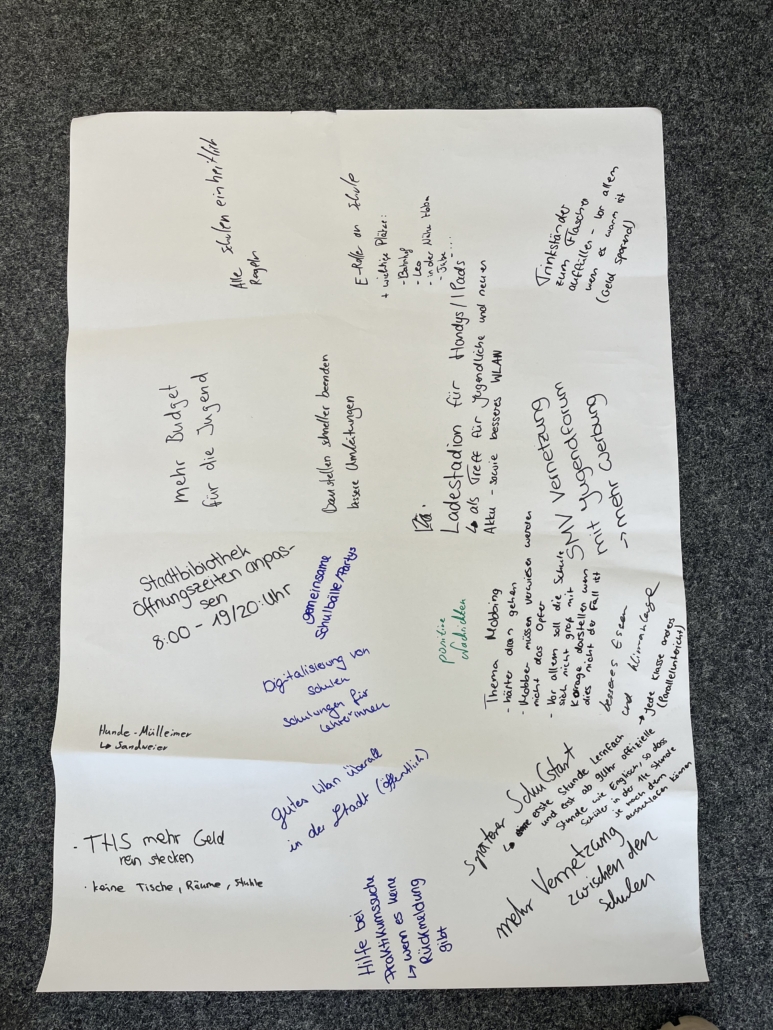 Alle Schulen einheitlich
Regeln
E-Roller an Schule
+ wichtige Plätze:
- Bahnhof
- Leo
- in der Nähe
- Jube ...
Trinkständer
zum Flasche
auffüllen - vor allem
wenn es warm ist
(Geld sparend)
mehr Budget
für die Jugend
Baustellen schneller beenden
bessere Umleitungen
Ladestadion für Handys/IPads
↳ als Treff für Jugendliche und neuen
Akku - sowie besseres WLAN
SMV Vernetzung
mit Jugendforum
→ mehr Werbung
Stadtbibiothek
Öffnungszeiten anpas-
sen
8:00 - 19/20:Uhr
gemeinsame
Schulbälle/Partys
positive
Nachrichten
Thema Mobbing
- härter dran gehen
- Mobber müssen verwiesen werden
nicht das Opfer
- Vor allem soll die Schule
sich nicht groß mit
Korage darstellen wenn
dies nicht der Fall ist
besseres Essen
und Klimaanlage
Digitalisierung von
Schulen
Schulungen für
Lehrer*innen
Hunde-Mülleimer
↳ Sandweier
gutes Wlan überall
in der Stadt (öffentlich)
späterer Schulstart
↳ erste Stunde Lernfach
und erst ab 9uhr offizielle
Stunde wie Englisch, so dass
Schüler in der 1te Stunde
je nach dem
ausschlafen können
→ Jede Klasse anders
(Parallelunterricht)
- THS mehr Geld
rein stecken
- keine Tische, Räume, Stühle
Hilfe bei
Praktikumssuche
↳ wenn es keine
Rückmeldung
gibt
mehr Vernetzung
zwischen den
Schulen